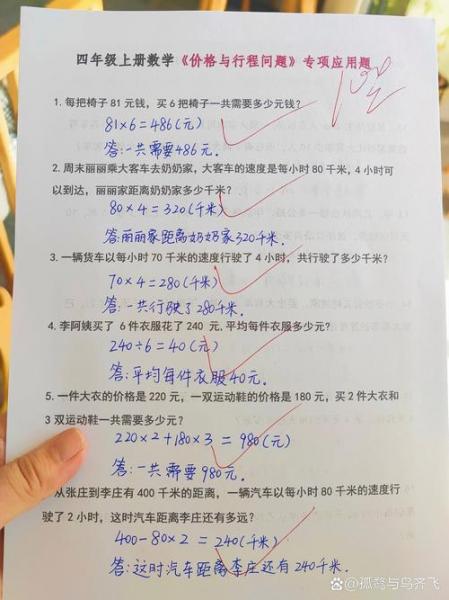 四年级上册数学《价格与行程问题》专项应用题
100
1. 每把椅子 81 元钱，买 6 把椅子一共需要多少元钱？
81×6=486(元)
答:一共需要486元.
2. 周末丽丽乘大客车去奶奶家，大客车的速度是每小时 80 千米，4 小时可
以到达，丽丽家距离奶奶家多少千米？
80×4=320(千米)
答:丽丽家距离奶奶家320千米.
3. 一辆货车以每小时 70 千米的速度行驶了 4 小时，共行驶了多少千米？
70×4=280(千米)
答:一共行驶了280千米.
4. 李阿姨买了 6 件衣服花了 240 元，平均每件衣服多少元？
240÷6=40(元)
答:平均每件衣服40元.
5. 一件大衣的价格是 220 元，一双运动鞋的价格是 180 元，买 2 件大衣和
3 双运动鞋一共需要多少元？
220×2+180×3=980(元)
答:一共需要980元.
从张庄到李庄有 400 千米的距离，一辆汽车以每小时 80 千米的速度行
驶了 2 小时，这时汽车距离李庄还有多远？
400-80×2=240(千米)
答:这时汽车距离李庄还有240千米.
@孤鹜与鸟齐飞